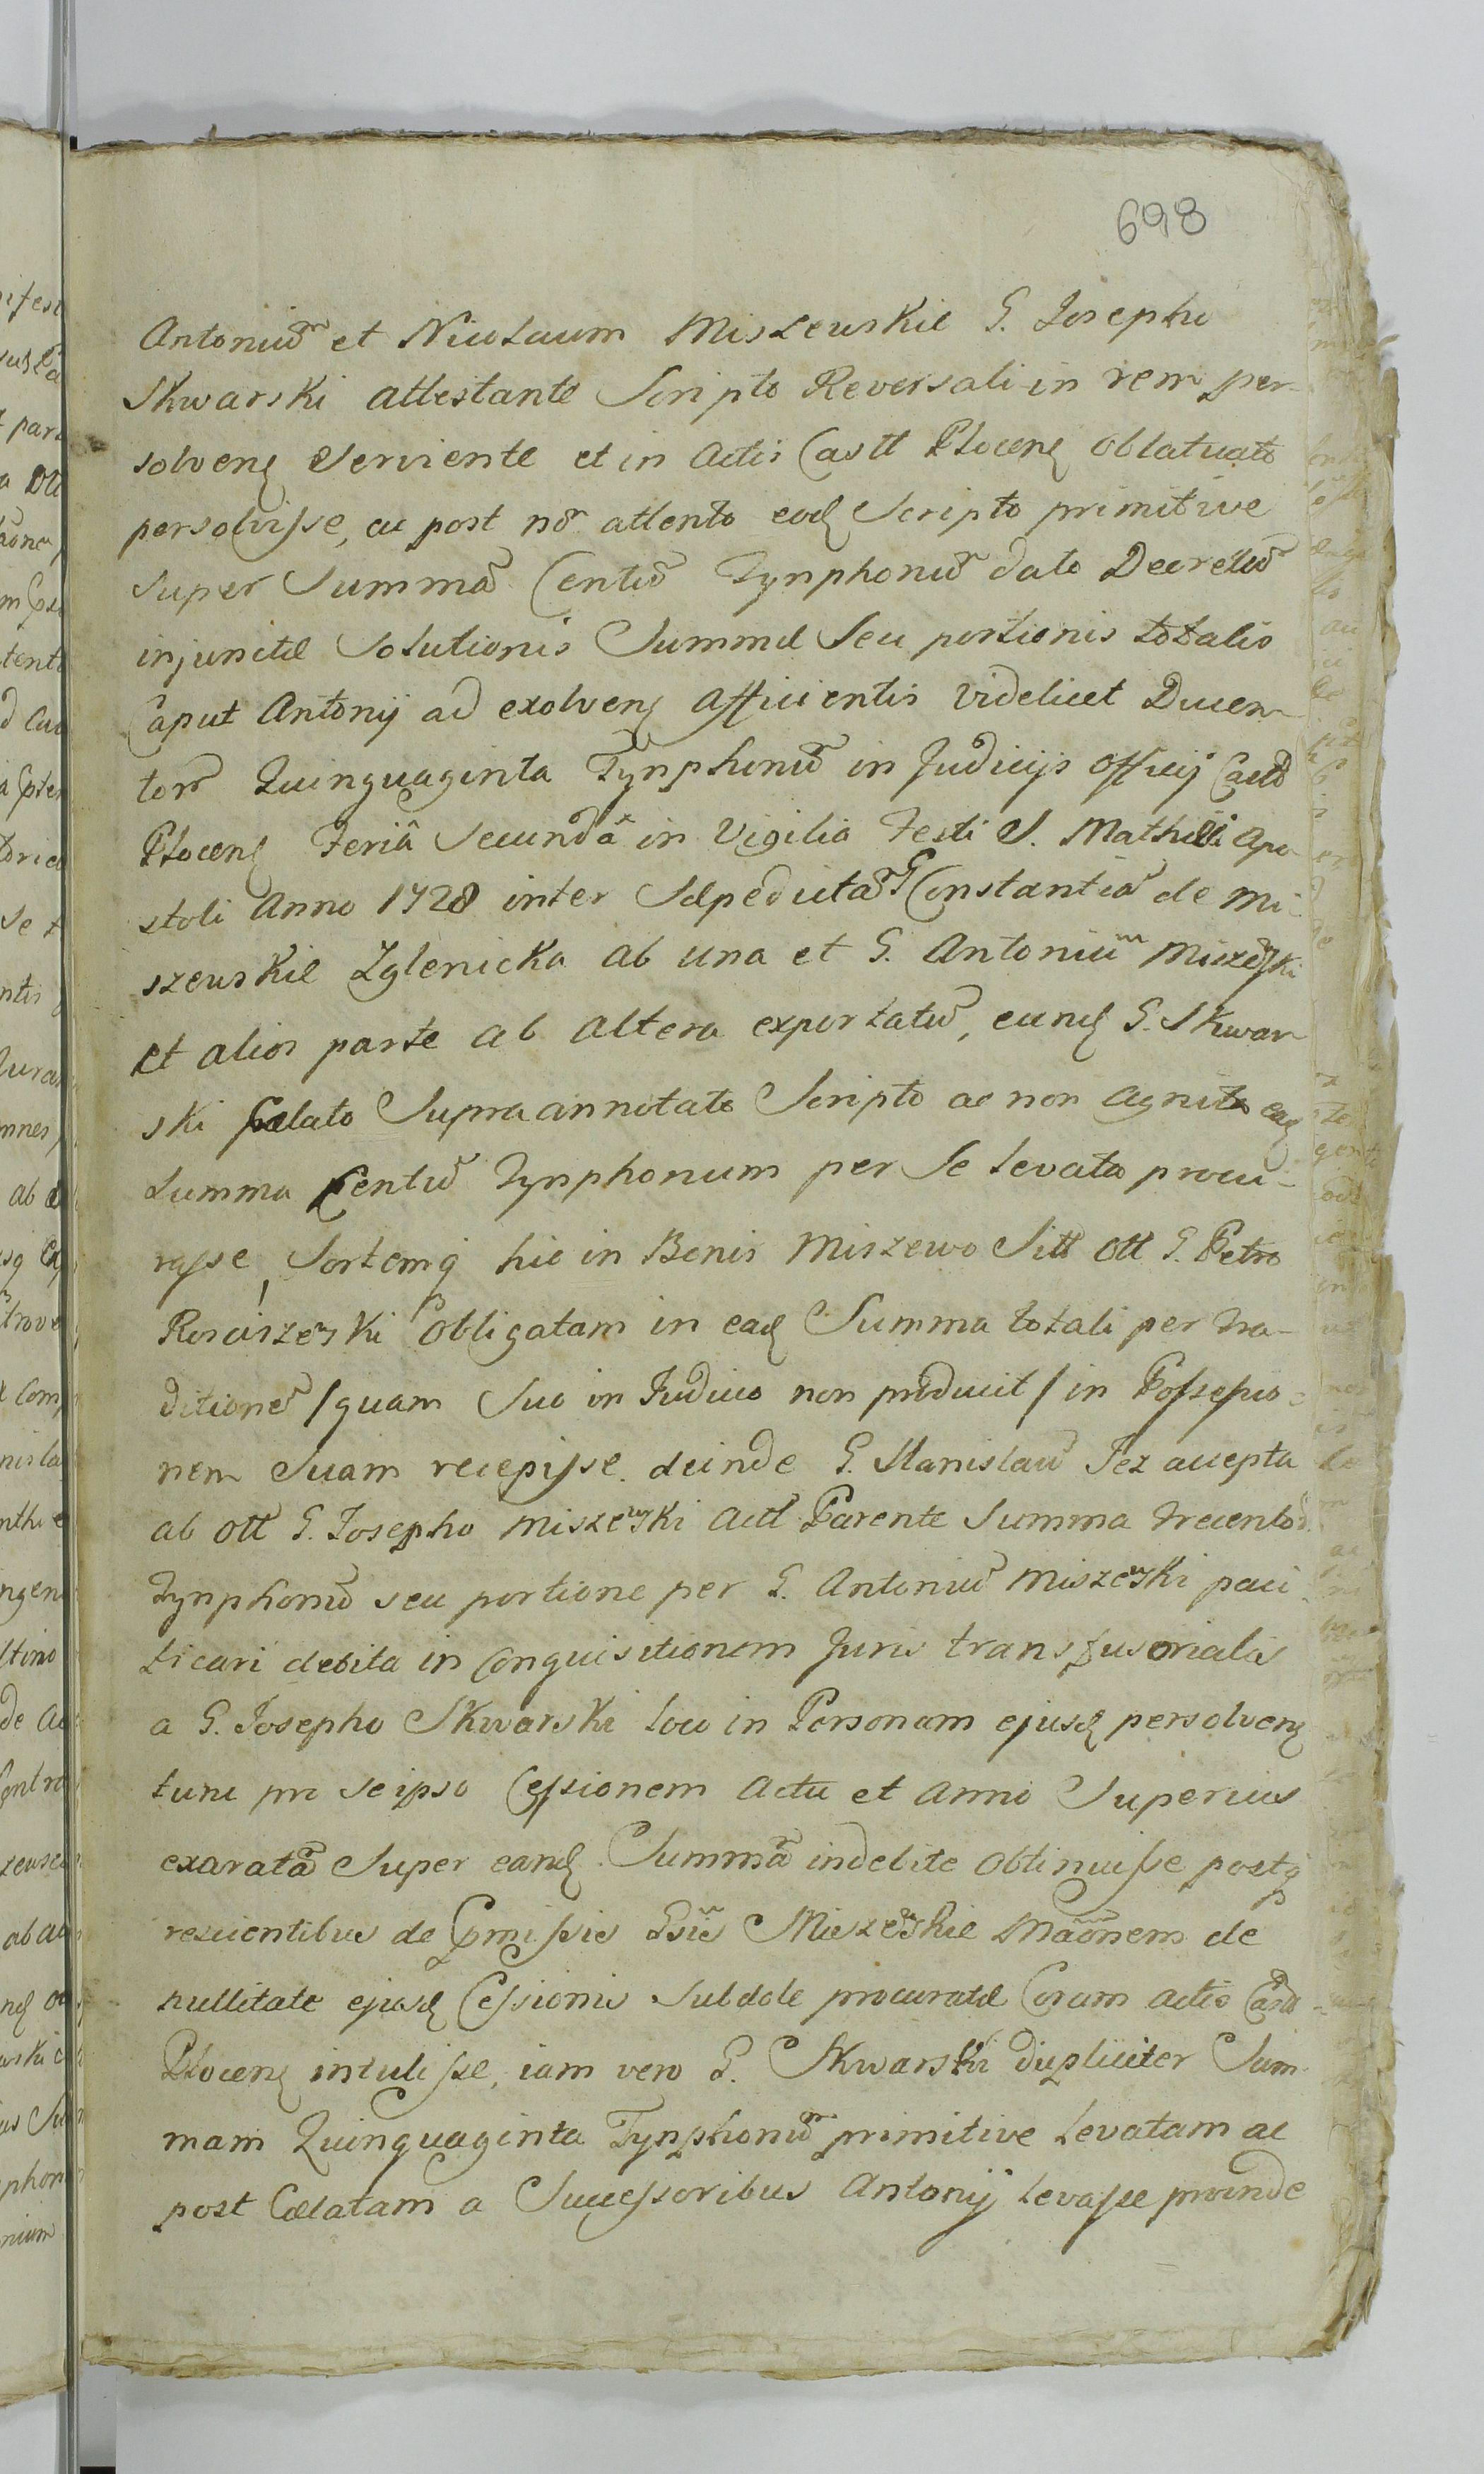 698
Antoniūm et Nicolaum Miszewskie G. Josepho
Skwarski attestante Scripto Reversali in rem per-
solvenʒ serviente et in Actis Castt Plocenʒ oblatuato
persolvisse, ac post nōr attento eodʒ Scripto primitive
super Summā Centū Tynphonū dato Decretū
injunctæ Solutionis Summæ seu portionis totalis
Caput Antonij ad exolvenʒ afficientis videlicet Ducen-
torr Quinquaginta Tynphonū in Judicijs Officij Castt
Plocenʒ Feriâ Secundâ in Vigilia Festi S. Mathæi Apo-
stoli Anno 1728 inter Sæpedictā G Constantiā de Mi-
szewskie Zglenicka ab una et G. Antoniūm Miszewski
et alios parte ab altera exportatū, eundʒ G. Skwar-
ski cælato Supraannotato Scripto ac non agnita eadʒ
Summa Centū Tynphonum per se levata procu-
rasse, Sortemq hic in Bonis Miszewo Sitt Ott G. Petro
Rościszewski Obligatam in eadʒ Summa totali per tra-
ditionē /quam Suo in Judicio non producit/ in Possessio-
nem Suam recepisse. deinde G. Stanislaū Jez accepta
ab Ott G. Josepho Miszewski Actt Parente Summa trecento
Tynphonū seu portione per G. Antoniū Miszewski paci-
ficari debita in conquisitionem Juris transfusorialis
a G. Josepho Skwarski loco in Personam ejusdʒ persolvenʒ
tunc pro seipso Cessionem Actu et Anno Superius
exaratā Super eandʒ Summā indebite obtinuisse postq
rescientibus de Præmissis Gsis Miszewskie Māōnem de
nullitate ejusdʒ Cessionis subdole procuratæ Coram actis Castt
Plocenʒ intulisse, iam vero G. Skwarski dupliciter Sum-
mam Quinquaginta Tynphonūm primitive levatam ac
post Cælatam a Successoribus Antonij levasse proinde